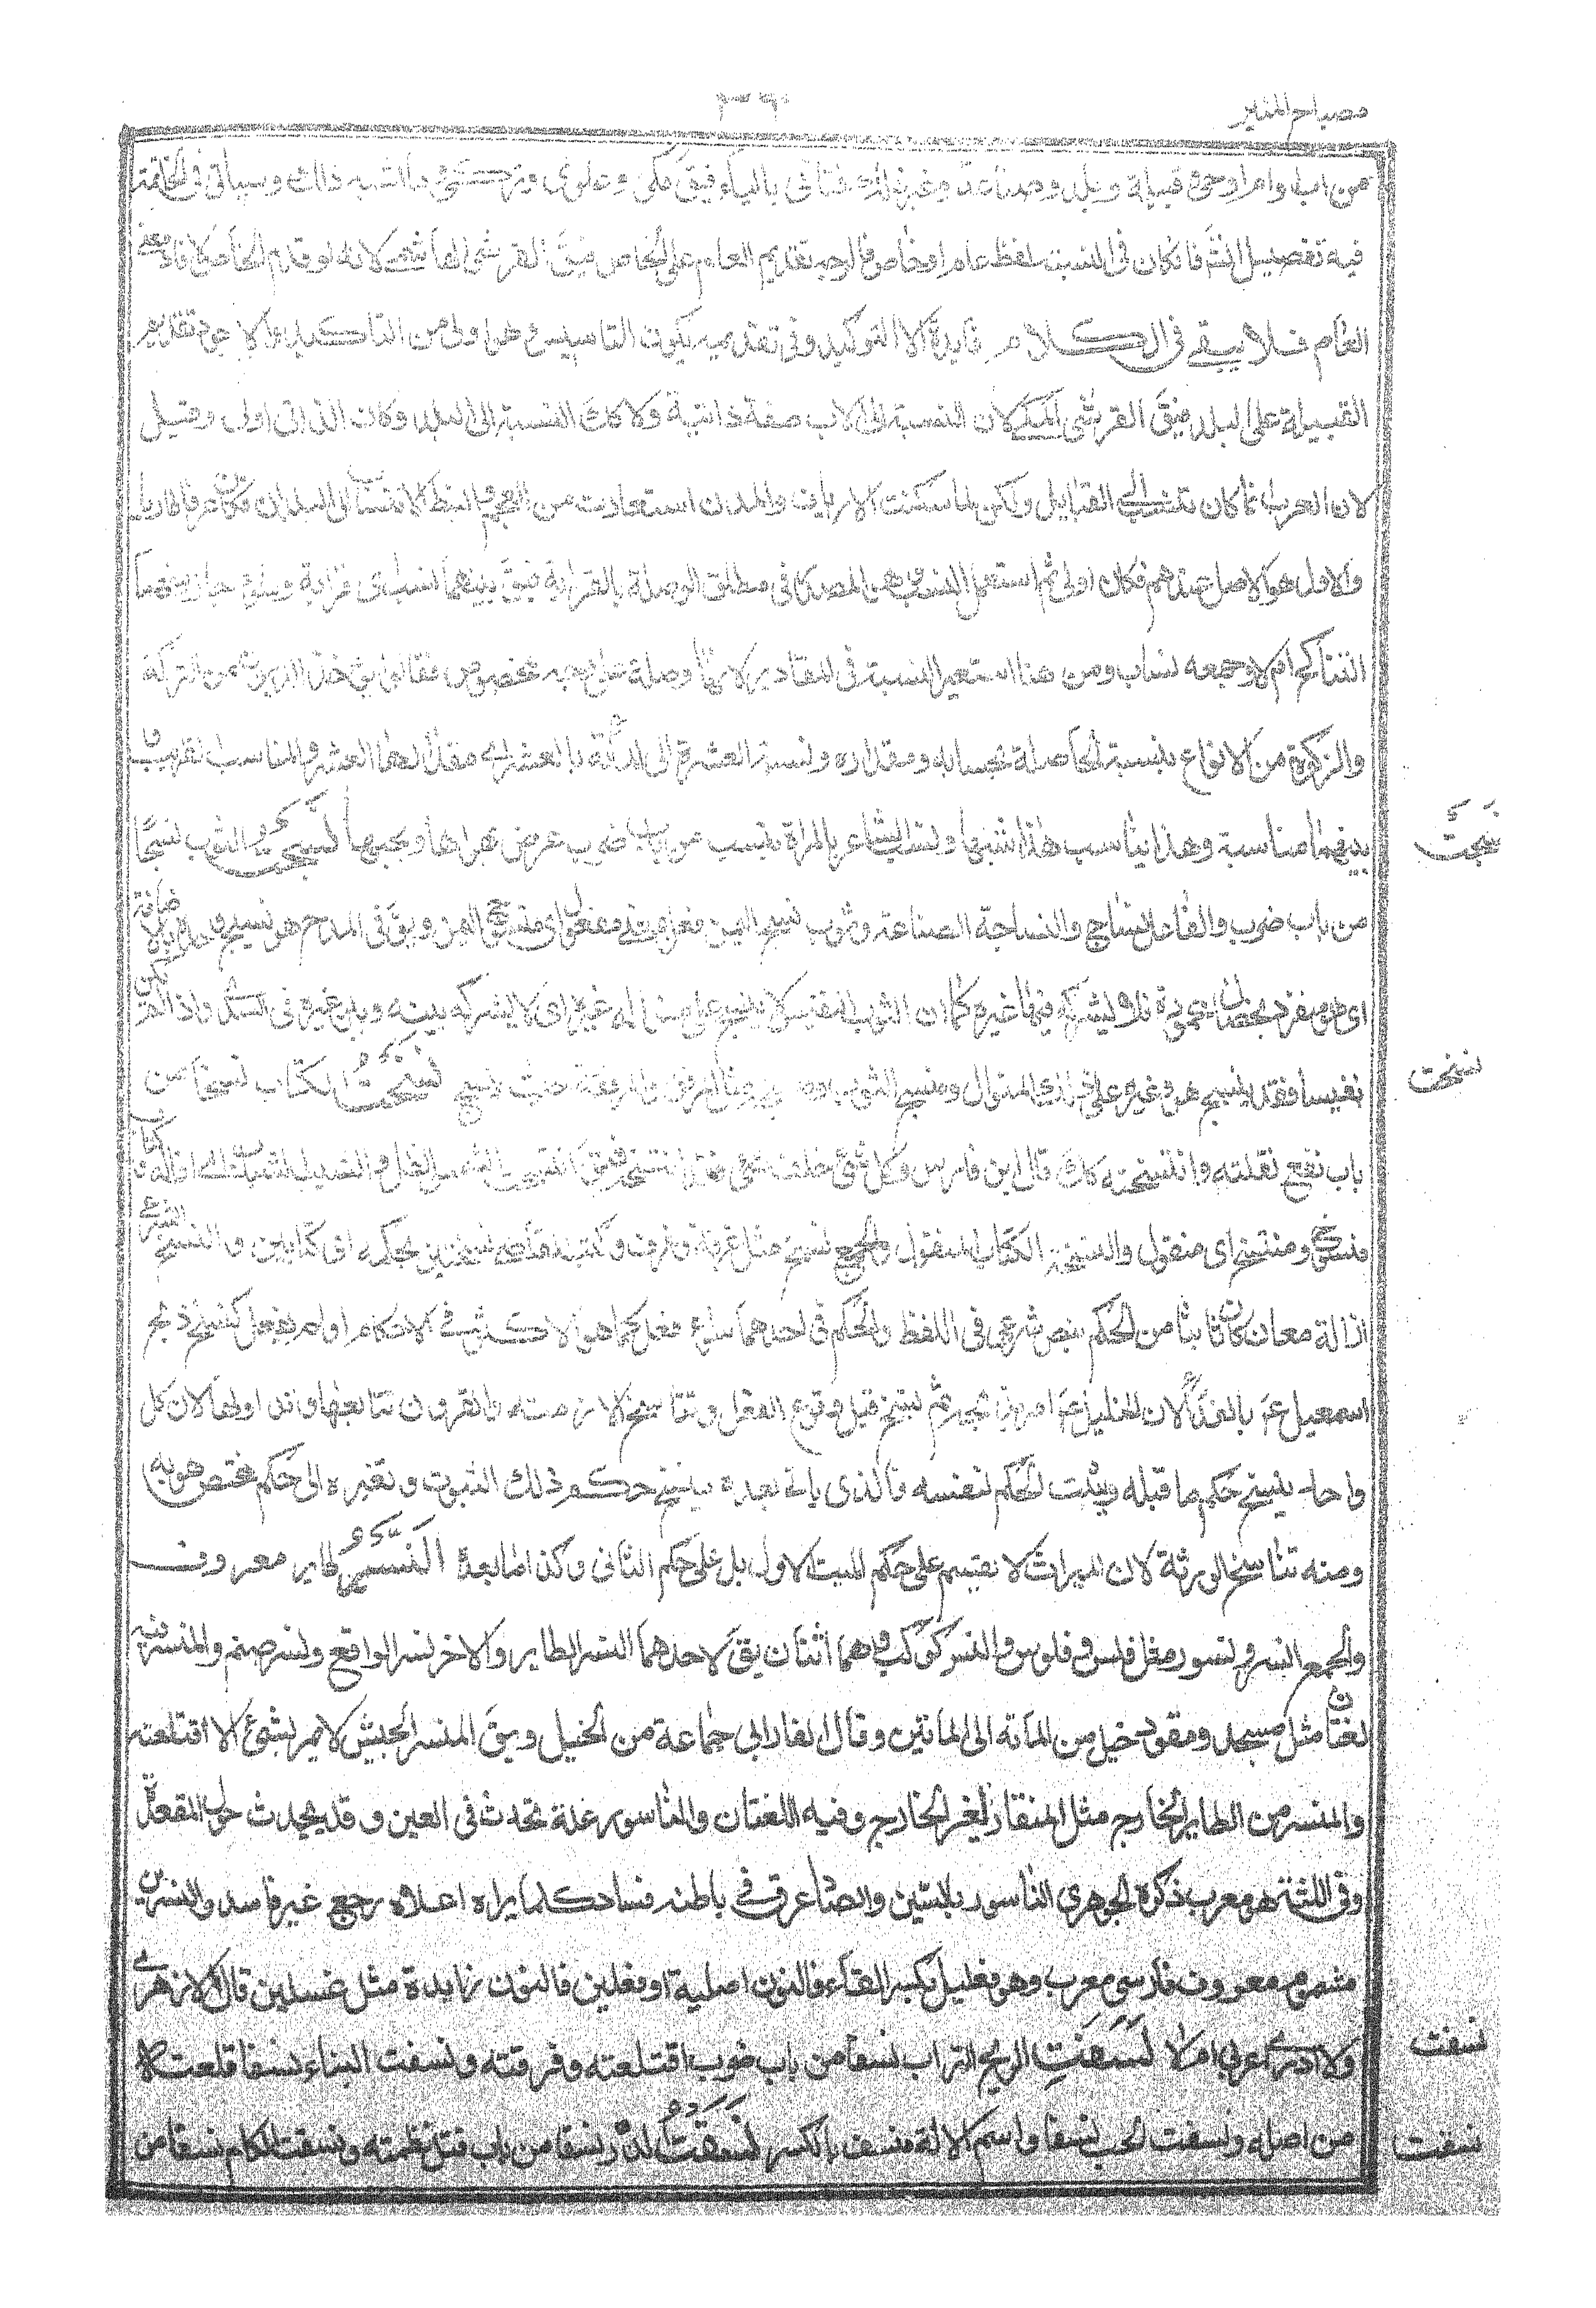 مصباح المنير
٣٦٠
من اب او ام او حى او قبيلة وبلد وصناعة وغير ذلك فتاتى بالياء فيق مكى وعلوى وتركى وما اشبه ذلك وسياتى فى الخاتمة
فيه تفصيل انش فا ن كان فى النسب لفظ عام وخاص فالوجه تقديم العام على الخاص فيق القرشى الهاشمى لانه لو قدم الخاص لافاد معنى
العام فلا يبقى فى الكلام فايدة الا التوكيد وفى تقديمه يكون التاسيس وهو اولى من التاكيد والاجود تقديم
القبيلة على البلد فيق القرشى المكى لان النسبة الى الاب صفة ذاتية ولا كك النسبة الى البلد وكان الذاتى اولى وقيل
لان العرب انما كان تنتسب الى القبايل ولكن لما سكنت الارياف والمدن استعارت من العجم والنبط الانتساب الى البلدان فكان عرفا طاريا
والاول هو الاصل عندهم فكان اولى ثم استعمل النسب وهو المصدر فى مطلق الوصلة بالقرابة فيق بينهما نسب اى قرابة وسواء جاز بينهما
التناكح ام لا وجمعه انساب ومن هنا استعير النسبة فى المقادير لانها وصلة على وجه مخصوص فقالوا يؤخذ الدين من التركة
والزكوة من الانواع بنسبة الحاصلة بحسابه ومقداره ونسبة العشرة الى المائة بالعشر اى مقدارها العشر والمناسب القريب
بينهما مناسبة وهذا يناسب هذا شبها ونسب الشاعر بالمراة ينسب من باب ضرب عرض بهواها وبحبها نسجت الثوب نسجًا
من باب ضرب والفاعل نساج والنساجة الصناعة وثوب نسج اليمن فعل بمعنى مفعول اى منسوج اليمن ويق فى المدح هو نسيج وحده بالاضافة
اى هو منفرد بخصال محمودة لا يشركه فيها غيره كما ان الثوب النفيس لا ينسج على منواله غيره اى لا يشرك بينه وبين غيره فى السدى واذا لم يكن
نفيسا فقد ينسج هو وغيره على ذلك المنوال ومنسج الثوب مثل المرفق والمرفق حيث ينسج نسخت الكتاب نسخا من
باب نفع نقلته وانتسخته كك قال ابن فارس وكل شئ خلف شيئا فقد انتسخه فيق انتسخت الشمس الظل والشيب الشباب اى ازاله وكتاب
منسوخ ومنتسخ اى منقول والنسخة الكتاب المنقول والجمع نسخ مثل غرفة وغرف وكتب القاضى نسختين بحكمه اى كتابين والنسخ الشرعى
ازالة ما كان ثابتا من الحكم بنص شرعى فى اللفظ والحكم فى احدهما سواء فعل كما هو الاكثر فى الاحكام او لم يفعل كنسخ ذبح
اسمعيل ع بالفدا لان الخليل ع امر بذبحه ثم نسخ قبل وقوع الفعل وتناسخ الازمنة والقرون تتابعها وتداولها لان كل
واحد ينسخ حكم ما قبله ويثبت الحكم لنفسه فالذى ياتى بعده ينسخ حكم ذلك الثبوت وتغيره الى حكم مختص هو به
ومنه تناسخ الورثة لان الميراث لا يقسم على حكم الميت الاول بل على حكم الثانى وكذا ما بعده النسر طاير معروف
والجمع انسر ونسور مثل فلس وفلوس والنسر كوكب وهما اثنان يق لاحدهما النسر الطاير والاخر النسر الواقع ونسر صنم والمنسر فيه
لغتان مثل مسجد ومقود خيل من المائة الى المائتين وقال الفارابى جماعة من الخيل ويق المنسر الجيش لا يمر بشئ الا اقتلعه
والمنسر من الطاير الجارح مثل المنقار لغير الجارح وفيه اللغتان والناسور علة تحدث فى العين وقد يحدث حول المقعدة
وفى اللثة وهو معرب ذكره الجوهرى الناسور بالسين والصاد عرق فى باطنه فساد كلما يراه اعلاه رجع غبر فاسد والنسرين
مشموم معروف فارسى معرب وهو فعليل بكسر الفاء فالنون اصلية او فعلين فالنون زايدة مثل غسلين قال الازهرى
ولا ادرى اعربى ام لا نسفت الريح التراب نسفا من باب ضرب اقتلعته وفرقته ونسفت البناء نسفا قلعته
من اصله ونسفت الحب نسفا واسم الالة منسف بالكسر نسقت الدر نسقا من باب قتل نظمته ونسقت الكلام نسقا من
نسجت
نسخت
نسفت
نسقت